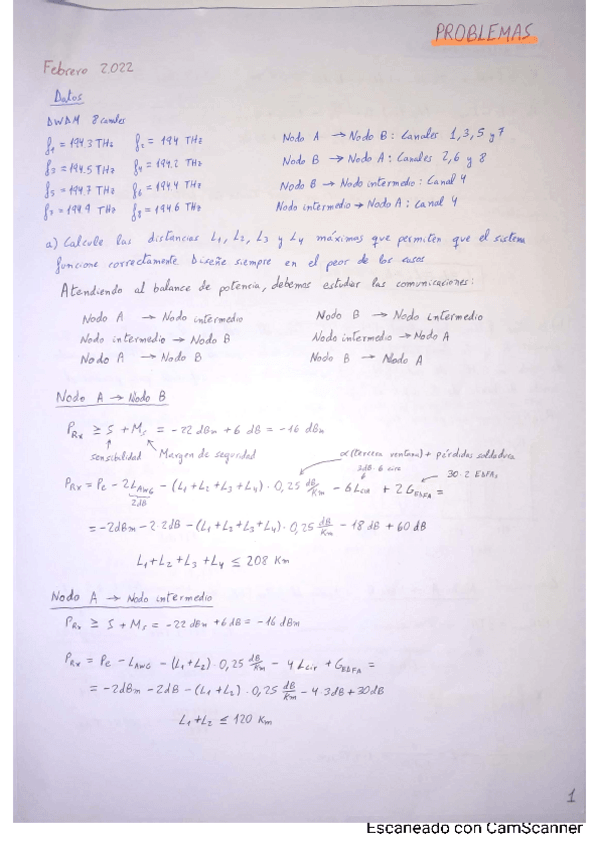 PROBLEMAS
Febrero 2022
Datos
DWDM 8 canales
f1 = 194.3 THz f2 = 194 THz Nodo A → Nodo B: Canales 1, 3, 5 y 7
f3 = 194.5 THz f4 = 194.2 THz Nodo B → Nodo A: Canales 2, 6 y 8
f5 = 194.7 THz f6 = 194.4 THz Nodo B → Nodo intermedio: Canal 4
f7 = 194.9 THz f8 = 194.6 THz Nodo intermedio → Nodo A: Canal 4
a) Calcule las distancias L1, L2, L3 y L4 máximas que permiten que el sistema
funcione correctamente Diseñe siempre en el peor de los casos
Atendiendo al balance de potencia, debemos estudiar las comunicaciones:
Nodo A → Nodo intermedio Nodo B → Nodo intermedio
Nodo intermedio → Nodo B Nodo intermedio → Nodo A
Nodo A → Nodo B Nodo B → Nodo A
Nodo A → Nodo B
PRx ≥ S + Ms = -22 dBm + 6 dB = -16 dBm
sensibilidad Margen de seguridad α(tercera ventana) + pérdidas soldadura
30·2 EDFAs
PRx = Pe - 2LAWG - (L1+L2+L3+L4)·0,25 dB/Km - 6Lcir + 2GEDFA =
2dB
= -2dBm - 2·2dB - (L1+L2+L3+L4)·0,25 dB/Km - 18 dB + 60 dB
L1+L2+L3+L4 ≤ 208 Km
Nodo A → Nodo intermedio
PRx ≥ S + Ms = -22 dBm + 6 dB = -16 dBm
PRx = Pe - LAWG - (L1+L2)·0,25 dB/Km - 4Lcir + GEDFA =
= -2dBm - 2dB - (L1+L2)·0,25 dB/Km - 4·3dB + 30dB
L1+L2 ≤ 120 Km
1
Escaneado con CamScanner